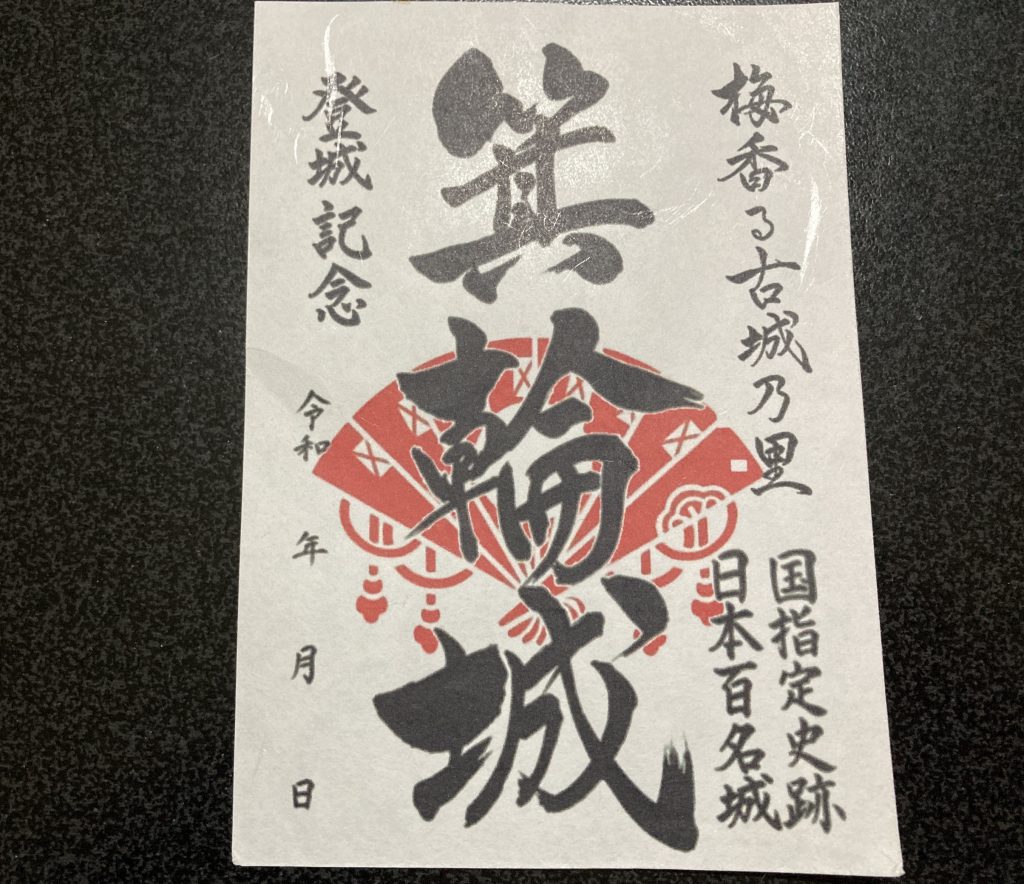 梅香る古城乃里
国指定史跡
日本百名城
箕輪城
登城記念
令和 年 月 日